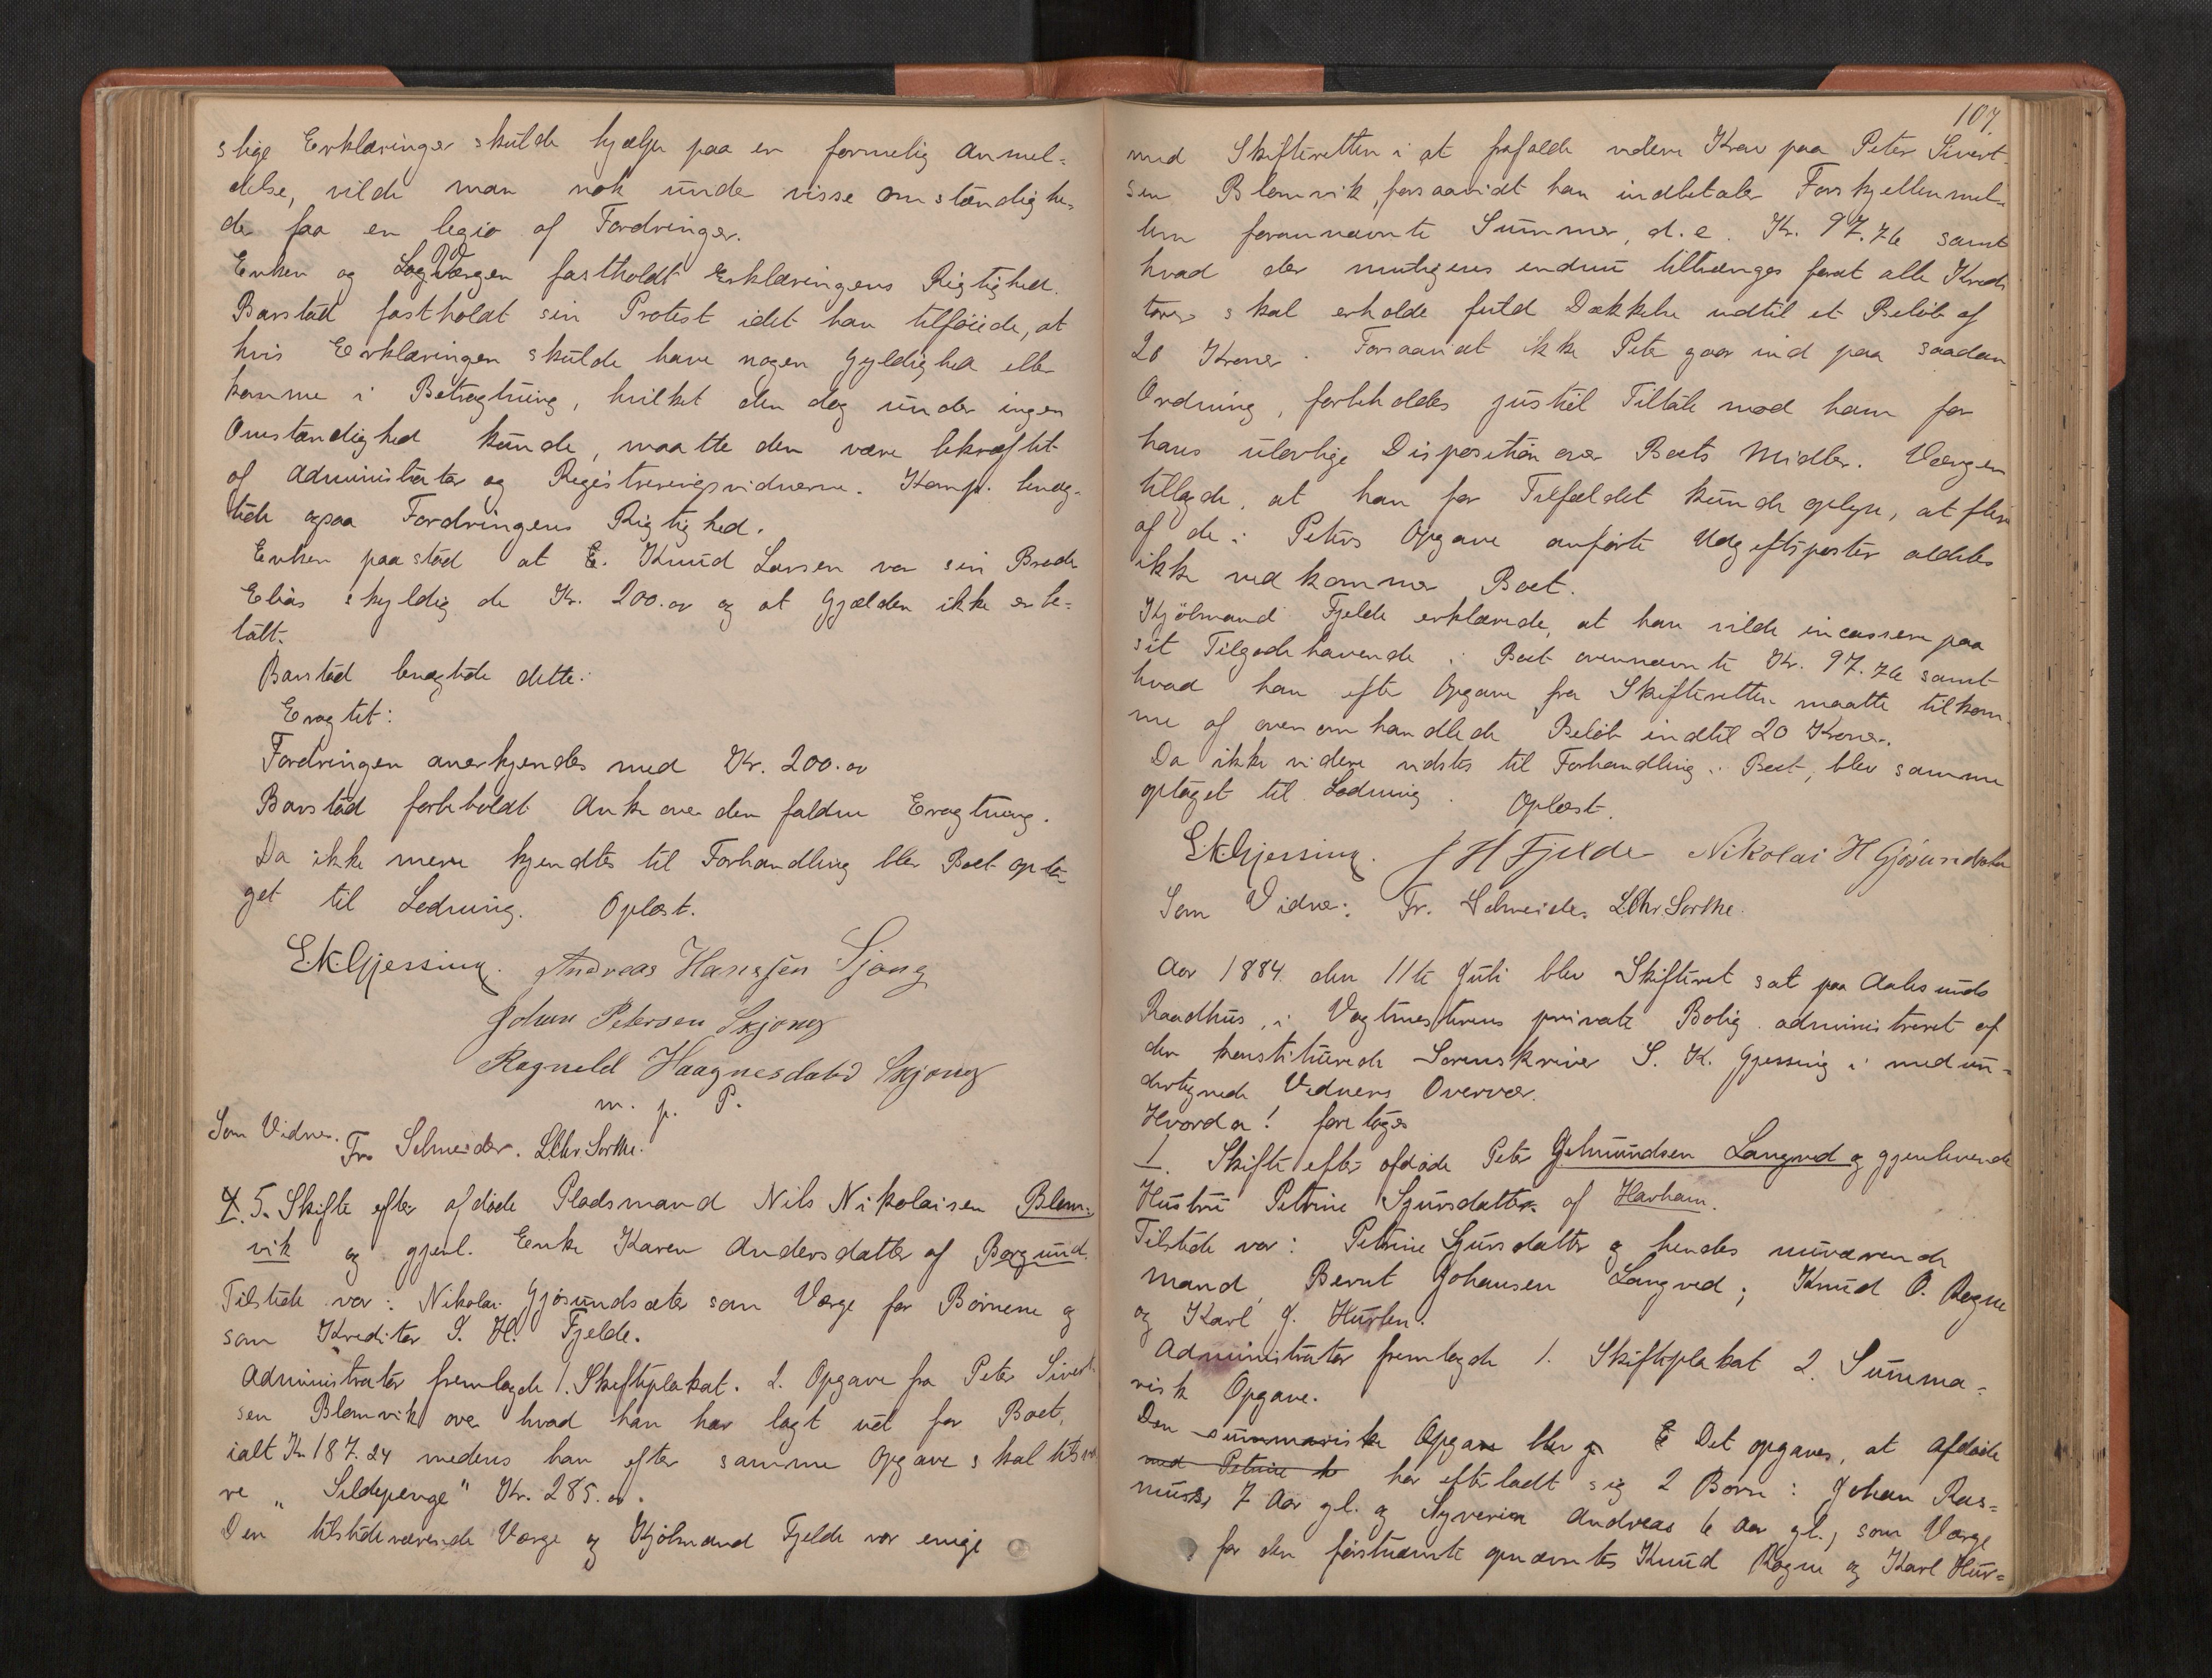 slige Erklæringer skulde hjælpe paa en formelig Anmel-
delse, vilde man nok under visse Omstændighe-
der faa en legio af Fordringer.
Enken og Lagværgen fastholdt Erklæringens Rigtighed.
Barstad fastholdt sin Protest idet han tilføiede, at
hvis Erklæringen skulde have nogen Gyldighed eller
komme i Betragtning, hvilket den dog under ingen
Omstændighed kunde, maatte den være bekræftet
af Administrator og Registreringsvidnerne. Komp. benæg-
tede ogsaa Fordringens Rigtighed.
Enken paastod at E. Knud Larsen var sin Broder
Elias skyldig de Kr. 200.00 og at Gjælden ikke er be-
talt.
Barstad benægtede dette.
Eragtet:
Fordringen anerkjendes med Kr. 200.00
Barstad forbeholdt Anke over den faldne Eragtning.
Da ikke mere kjendtes til Forhandling blev Boet opta-
get til Lodning. Oplæst.
S.K.Gjessing. Andreas Hanssen Sjong
Johan Petersen Skjong
Ragneld Haagnesdatter Skjong
m. p. P.
Som Vidner. Fr. Schneider. L Chr. Sorthe.
4. 5. Skifte efter afdøde Pladsmand Nils Nikolaisen Blom-
vik og gjenl. Enke Karen Andersdatter af Borgund.
Tilstede var: Nikolai Gjøsundsæter som Værge for Børnene og
som Kreditor J. H. Fjelde.
Administrator fremlagde 1. Skifteplakat. 2. Opgave fra Peter Sivert-
sen Blomvik over hvad han har lagt ud for Boet,
ialt Kr 187.24 medens han efter samme Opgave skal tilsva-
re "Sildepenge" Kr. 285.00.
Den tilstedeværende Værge og Kjøbmand Fjelde var enige
107.
med Skifteretten i at frafalde videre Krav paa Peter Sivert-
sen Blomvik, forsaavidt han indbetaler Forskjellen mel-
lem forannævnte Summer, d. e. Kr. 97.76 samt
hvad der muligens endnu tiltrænges forat alle Kredi
torer skal erholde fuld Dækkelse indtil et Beløb af
20 Kroner. Forsaavidt ikke Peter gaar ind paa saadan
Ordning, forbeholdes justiel Tiltale mod ham for
hans ulovlige Disposition over Boets Midler. Værgen
tillagde, at han for Tilfældet kunde oplyse, at flere
af de i Peters Opgave anførte Udgiftsposter aldeles
ikke vedkommer Boet.
Kjøbmand Fjelde erklærede, at han vilde incassere paa
sit Tilgodehavende i Boet ovennævnte Kr. 97.76 samt
hvad han efter Opgave fra Skifteretten maatte tilkom-
me af ovenomhandlede Beløb indtil 20 Kroner.
Da ikke videre vidstes til Forhandling i Boet, blev samme
optaget til Lodning. Oplæst.
S.K.Gjessing. J H Fjelde Nikolai H Gjøsundsæter
Som Vidner: Fr. Schneider L Chr. Sorthe.
Aar 1884 den 11te Juli blev Skifteret sat paa Aalesunds
Raadhus, i Vagtmesterens private Bolig administreret af
den konstituerede Sorenskriver S. K. Gjessing i med un-
dertegnede Vidners Overvær.
Hvorda! foretages
1. Skifte efter afdøde Peter Gelmundsen Langved og gjenlevende
Hustru Petrine Sjursdatter af Harham.
Tilstede var: Petrine Sjursdatter og hendes nuværende
Mand Bernt Johansen Langved; Knud O. Rogne
og Karl J. Hurlen.
Administrator fremlagde 1. Skifteplakat 2. Summa-
risk Opgave.
Den summariske Opgave blev g E Det opgaves, at Afdøde
med Petrine h har efterladt sig 2 Børn: Johan Ras-
mus, 7 Aar gl. og Syverin Andreas 6 Aar gl., som Værge
for den førstnævnte opnævntes Knud Rogne og Karl Hur-